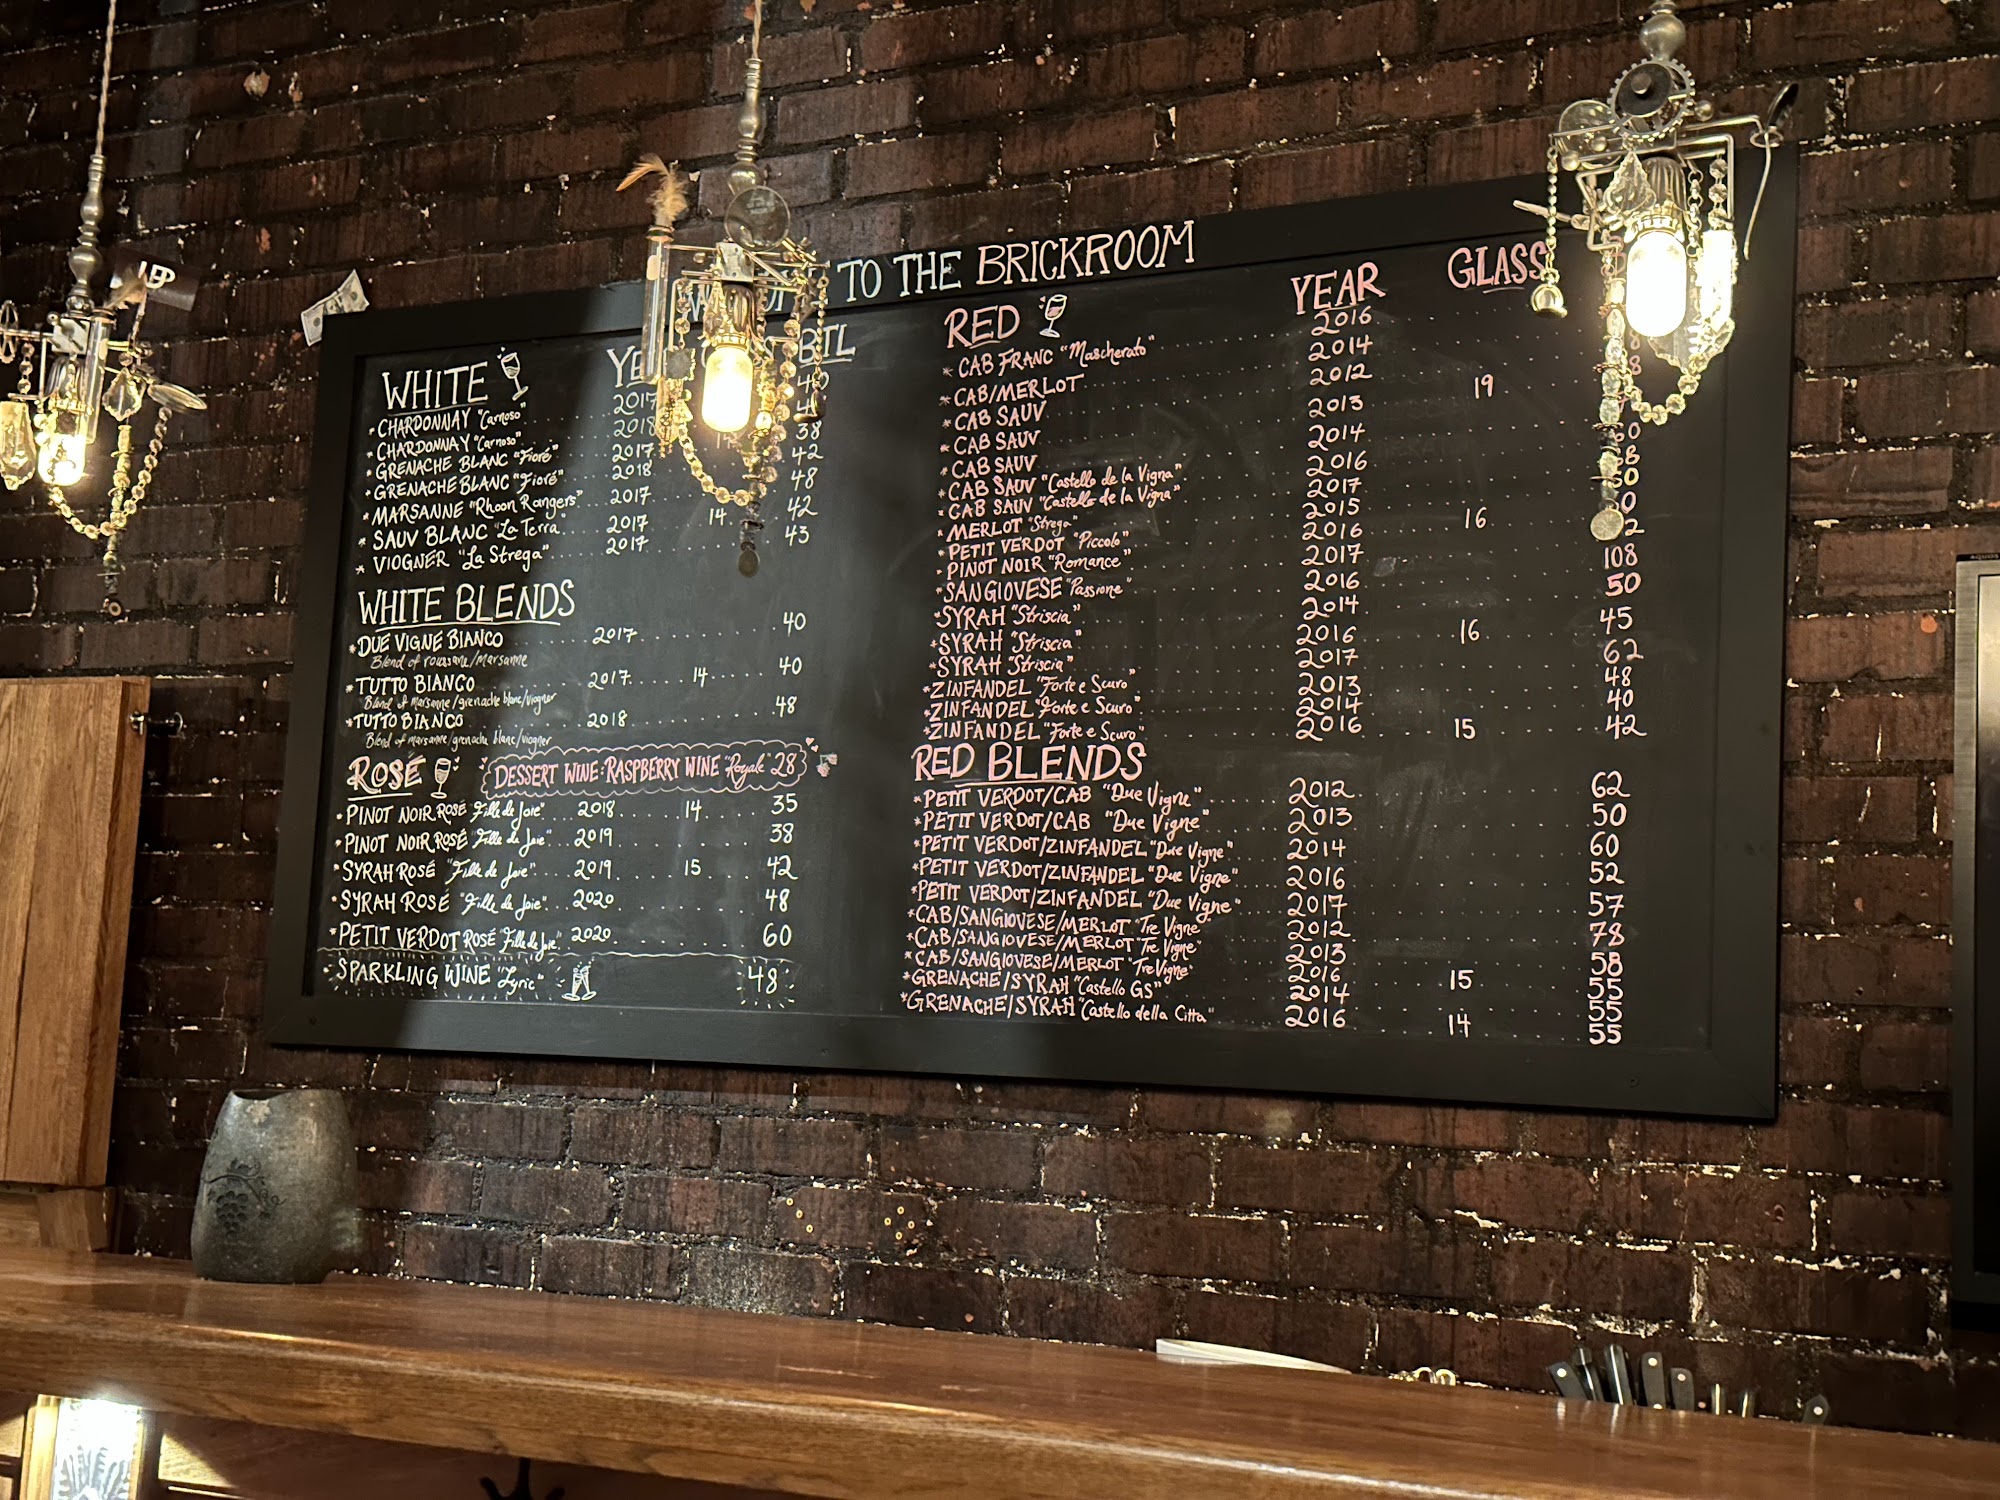 TO THE BRICKROOM
WHITE BTL
CHARDONNAY "Carnoso" 2017
CHARDONNAY "Carnoso" 2018
GRENACHE BLANC "Fioré" 2017 38
GRENACHE BLANC "Fioré" 2018 42
MARSANNE "Rhoon Rangers" 2017 48
SAUV BLANC "La Terra" 2017 14 42
VIOGNER "La Strega" 2017 43
WHITE BLENDS
DUE VIGNE BIANCO 2017 40
Blend of roussane/marsanne
TUTTO BIANCO 2017 14 40
Blend of Marsanne/grenache blanc/viogner
TUTTO BIANCO 2018 48
Blend of marsanne/grenache blanc/viogner
ROSÉ
DESSERT WINE: RASPBERRY WINE "Royale" 28
PINOT NOIR ROSÉ "Fille de Joie" 2018 14 35
PINOT NOIR ROSÉ "Fille de Joie" 2019 38
SYRAH ROSÉ "Fille de Joie" 2019 15 42
SYRAH ROSÉ "Fille de Joie" 2020 48
PETIT VERDOT ROSÉ "Fille de Joie" 2020 60
SPARKLING WINE "Lyric" 48
RED YEAR GLASS
CAB FRANC "Mascherato" 2016
CAB/MERLOT 2014
CAB SAUV 2012 19
CAB SAUV 2013
CAB SAUV 2014
CAB SAUV "Castello de la Vigna" 2016
CAB SAUV "Castello de la Vigna" 2017
MERLOT "Strega" 2015 16
PETIT VERDOT "Piccolo" 2016 108
PINOT NOIR "Romance" 2017 50
SANGIOVESE "Passione" 2016
SYRAH "Striscia" 2014 45
SYRAH "Striscia" 2016 16 62
SYRAH "Striscia" 2017 48
ZINFANDEL "Forte e Scuro" 2013 40
ZINFANDEL "Forte e Scuro" 2014
ZINFANDEL "Forte e Scuro" 2016 15 42
RED BLENDS
PETIT VERDOT/CAB "Due Vigne" 2012 62
PETIT VERDOT/CAB "Due Vigne" 2013 50
PETIT VERDOT/ZINFANDEL "Due Vigne" 2014 60
PETIT VERDOT/ZINFANDEL "Due Vigne" 2016 52
PETIT VERDOT/ZINFANDEL "Due Vigne" 2017 57
CAB/SANGIOVESE/MERLOT "Tre Vigne" 2012 78
CAB/SANGIOVESE/MERLOT "Tre Vigne" 2013 58
CAB/SANGIOVESE/MERLOT "Tre Vigne" 2016 15 55
GRENACHE/SYRAH "Castello GS" 2014 55
GRENACHE/SYRAH "Castello della Citta" 2016 14 55